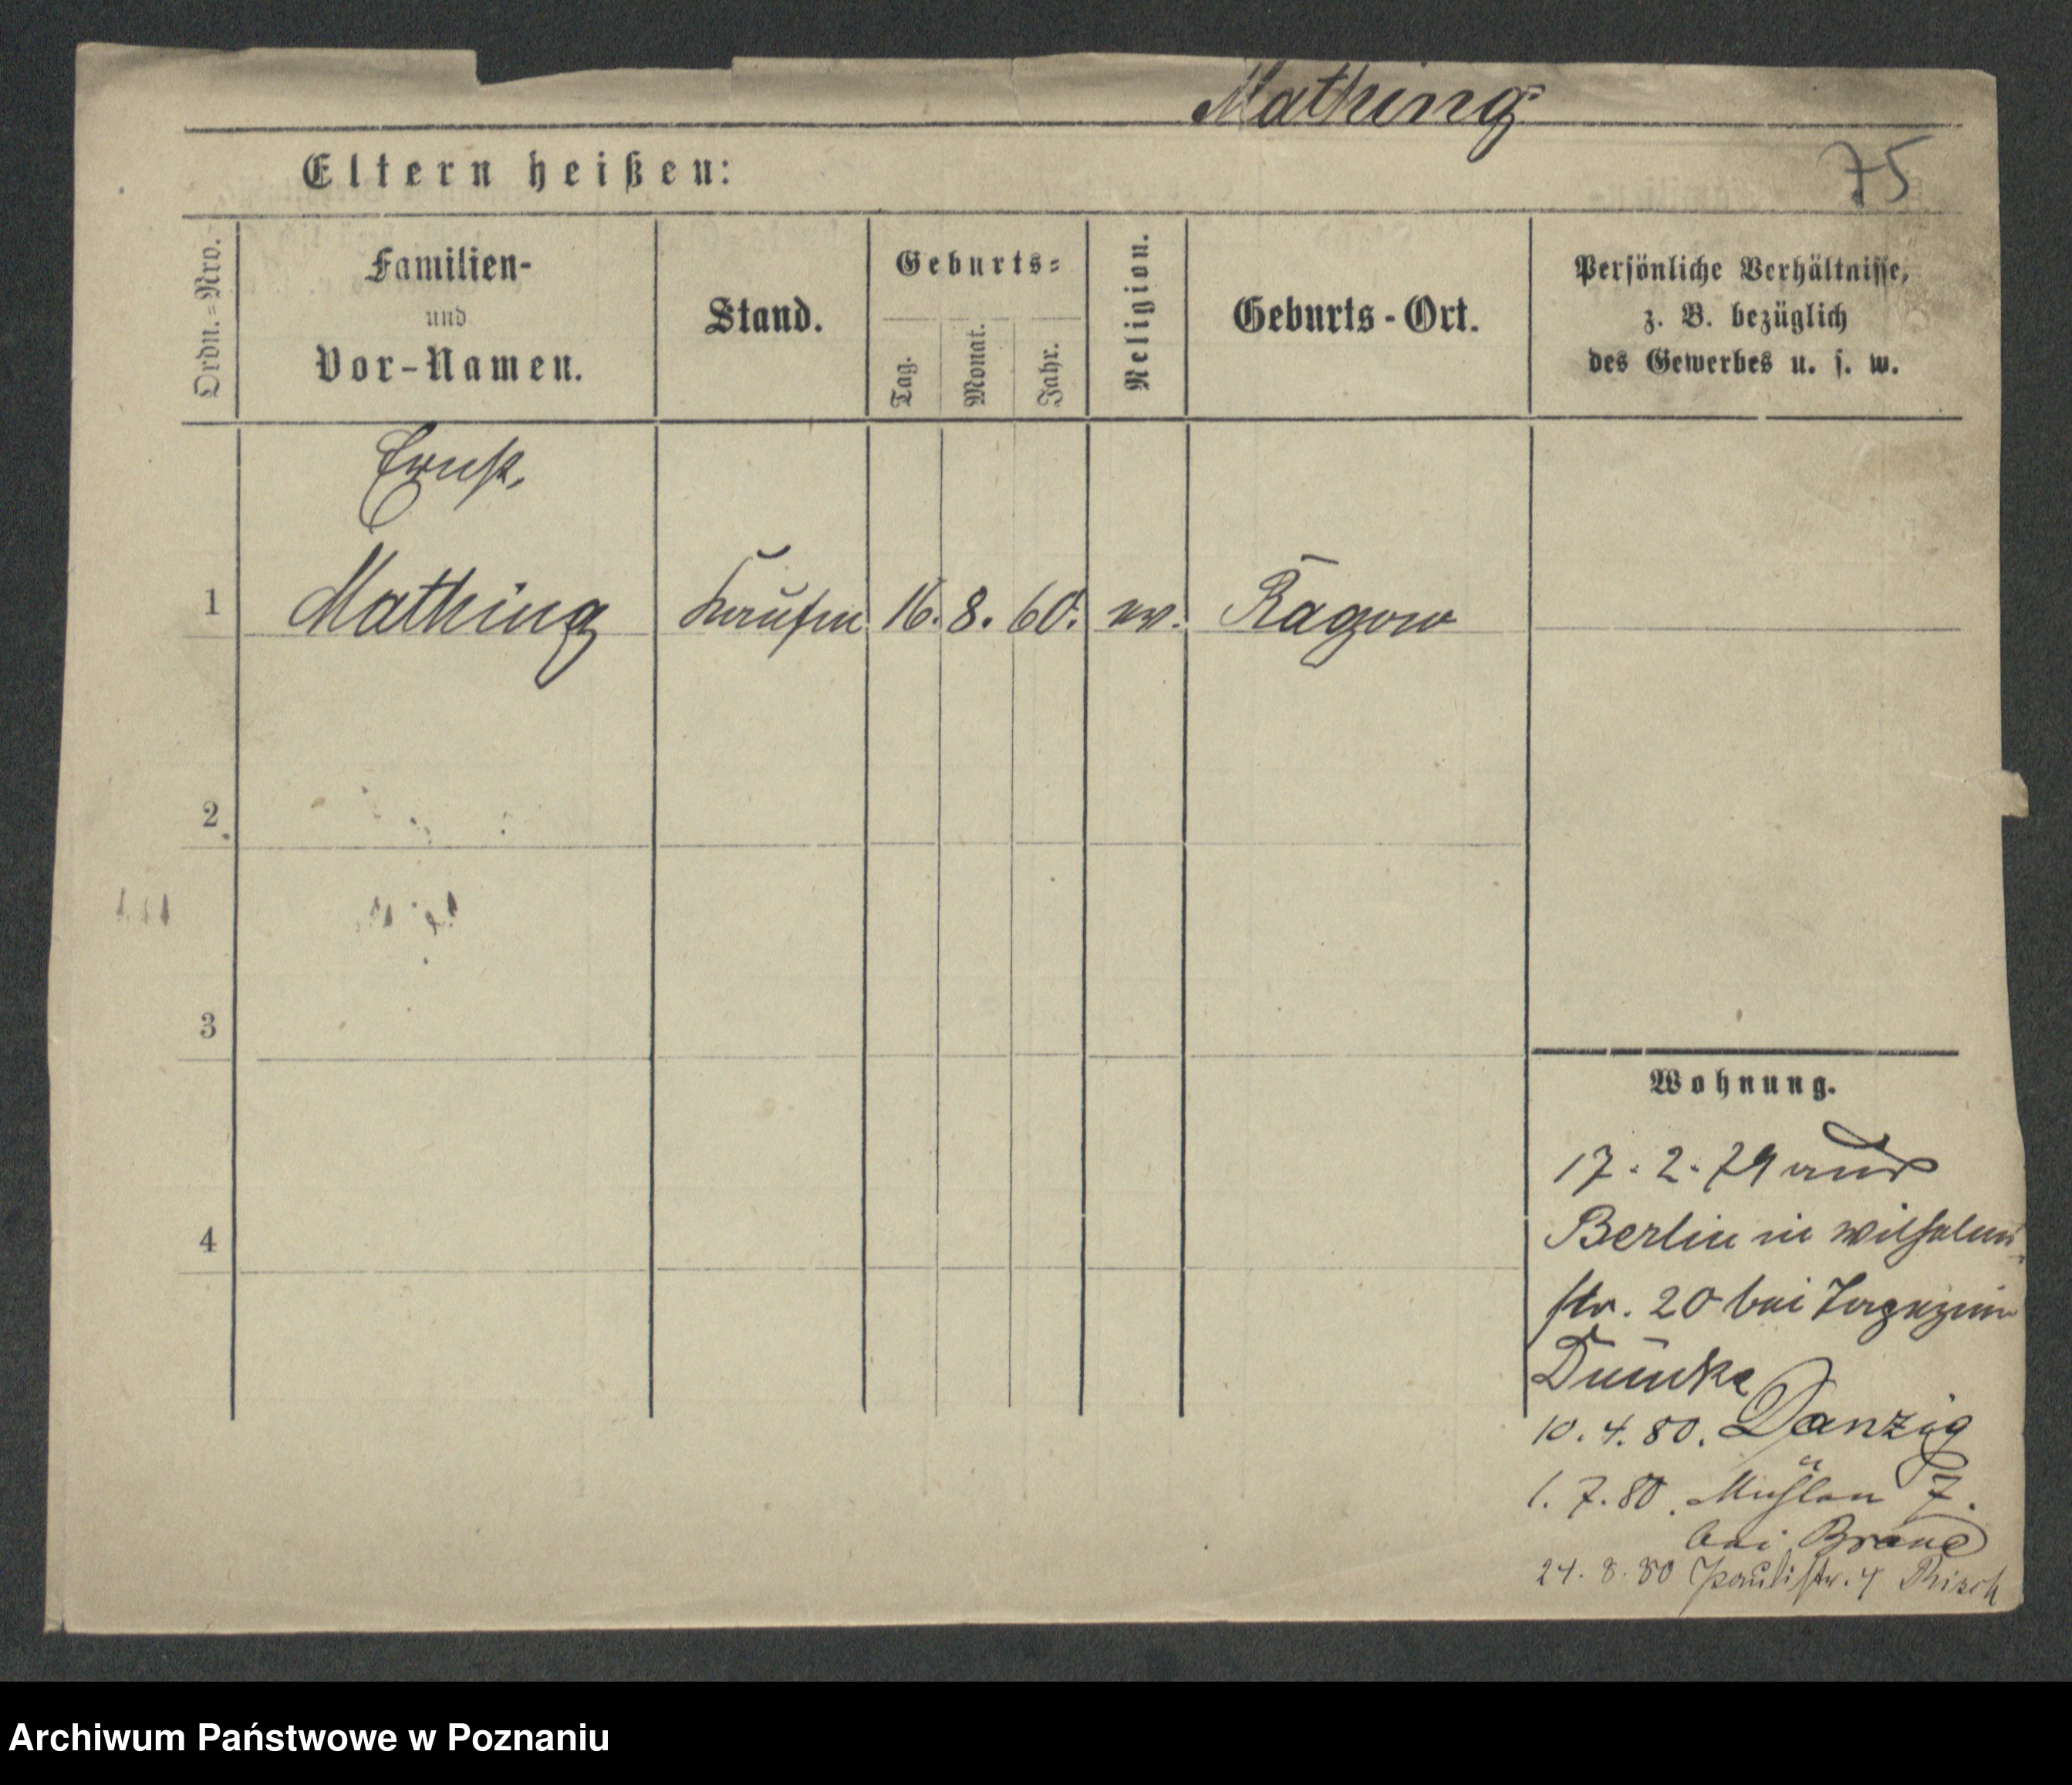 Mathing
75
Eltern heißen:
Ordn.=Nro.
Familien-
und
Vor-Namen.
Stand.
Geburts=
Tag.
Monat.
Jahr.
Religion.
Geburts-Ort.
Persönliche Verhältnisse,
z. B. bezüglich
des Gewerbes u. s. w.
Ernst.
1 Mathing Kaufm 16. 8. 60. ev. Ragow
2
3
4
Wohnung.
17. 2. 79 aus
Berlin in Wilhelms
str. 20 bei
Dümke
10. 4. 80. Danzig
1. 7. 80. Mühlen 7.
bei Brand
24. 8. 80 Paulistr. 4
Archiwum Państwowe w Poznaniu